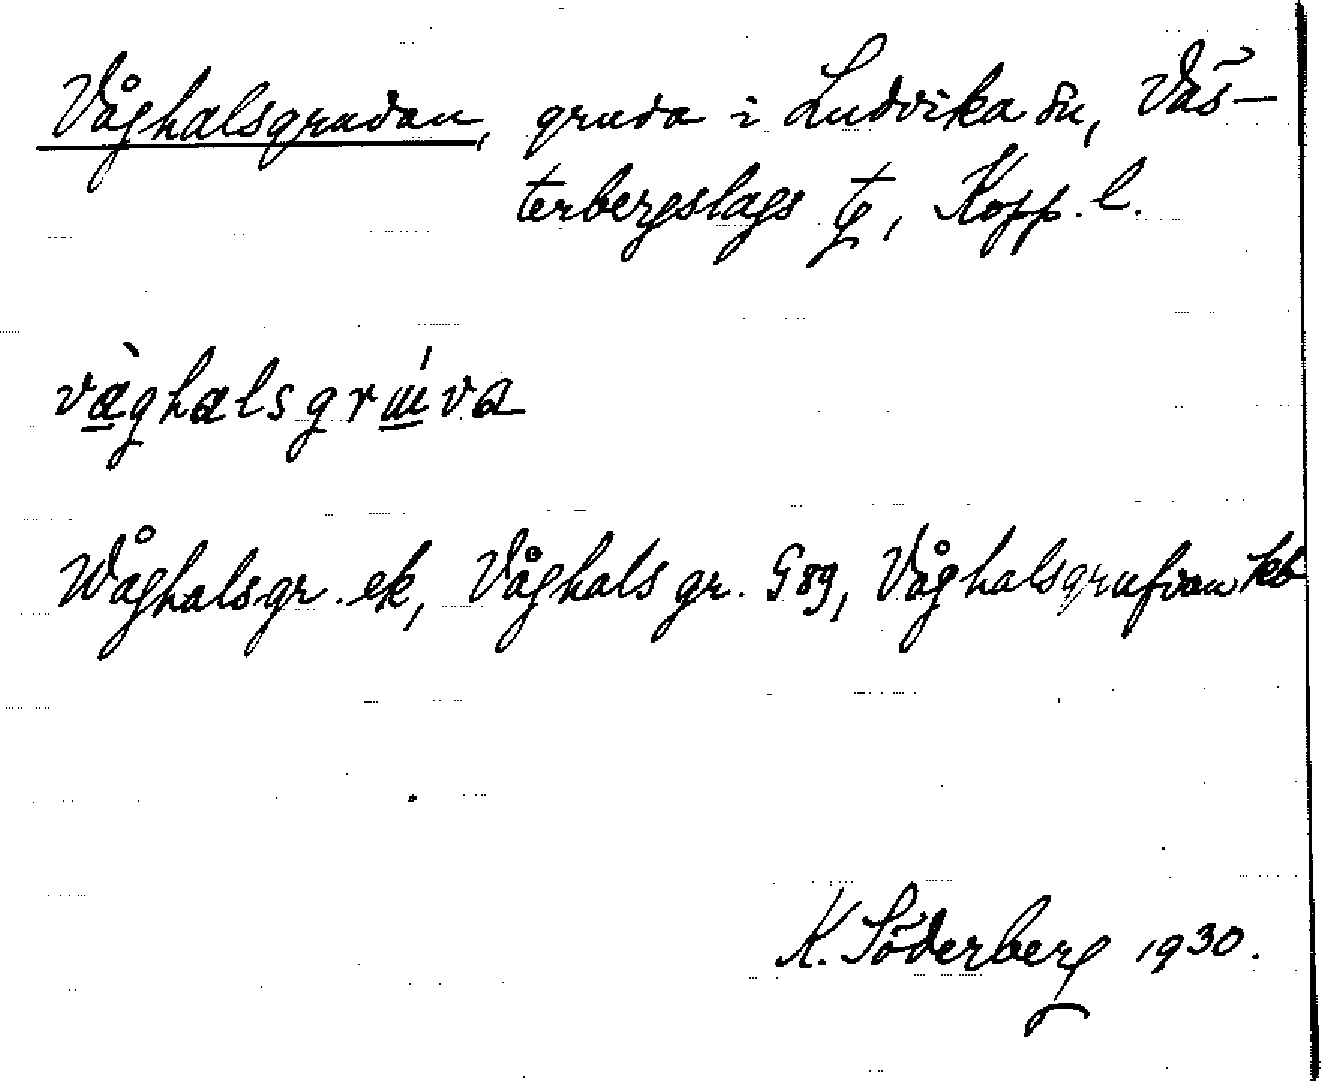 Våghalsgruvan, gruva i Ludvika sn, Väs-
terbergslags tg, Kopp. l.
vàghalsgrúva
Wåghalsgr. ek, Våghals gr. G 89, Våghalsgrufvan kb
K. Söderberg 1930.